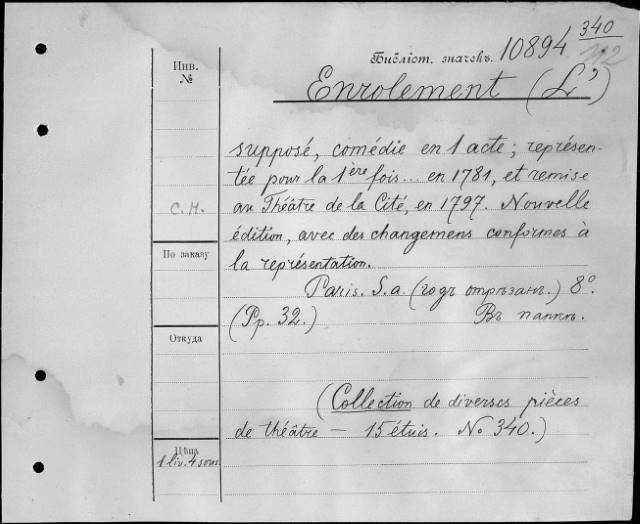 340
Библіот. значекъ. 10894
112
Инв.
№
Enrolement (L')
supposé, comédie en 1 acte; représen-
tée pour la 1ère fois... en 1781, et remise
au Théâtre de la Cité, en 1797. Nouvelle
édition, avec des changemens conformes à
la représentation.
С.Н.
По заказу
Paris. S.a. (годъ отрѣзанъ.) 8°.
(Pp. 32.) Въ папкѣ.
Откуда
(Collection de diverses pièces
de théâtre — 15 étuis. No 340.)
Цѣна
1 liv. 4 sous.